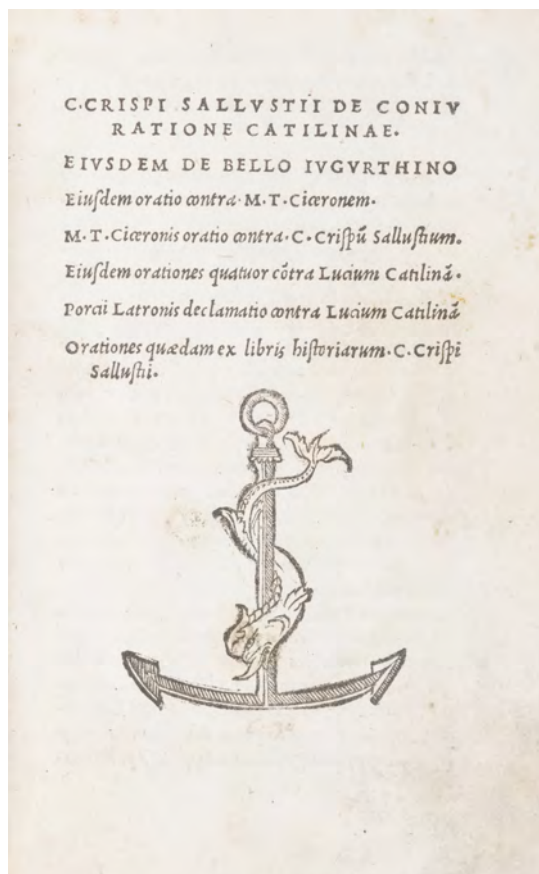 C·CRISPI SALLVSTII DE CONIV
RATIONE CATILINAE.
EIVSDEM DE BELLO IVGVRTHINO
Eiuſdem oratio contra· M·T·Ciceronem·
M·T·Ciceronis oratio contra·C·Criſpũ Salluſtium.
Eiuſdem orationes quatuor cõtra Lucium Catilinã·
Porcii Latronis declamatio contra Lucium Catilinã
Orationes quædam ex libris hiſtoriarum·C·Criſpi
Salluſtii.